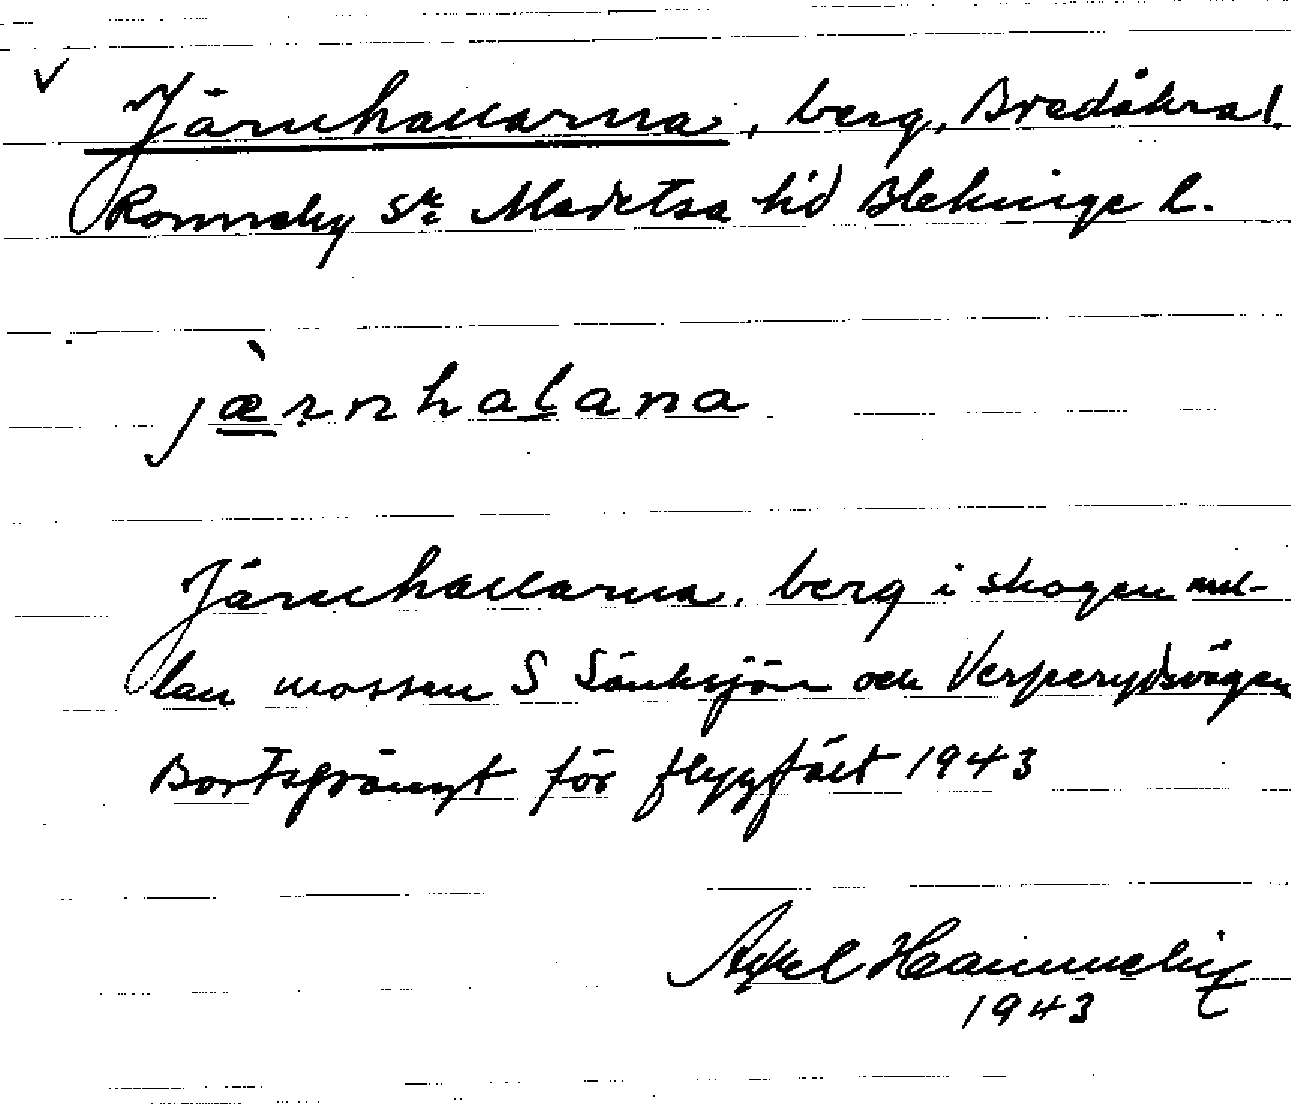 Järnhallarna, berg, Bredåkra l.
Ronneby sn Medelsta hd Blekinge l.
jæ̀rnhalana
Järnhallarna. berg i skogen mel-
lan mossen S Sänksjön och Verperydsvägen
Bortsprängt för flygfält 1943
Axel Hammelin
1943